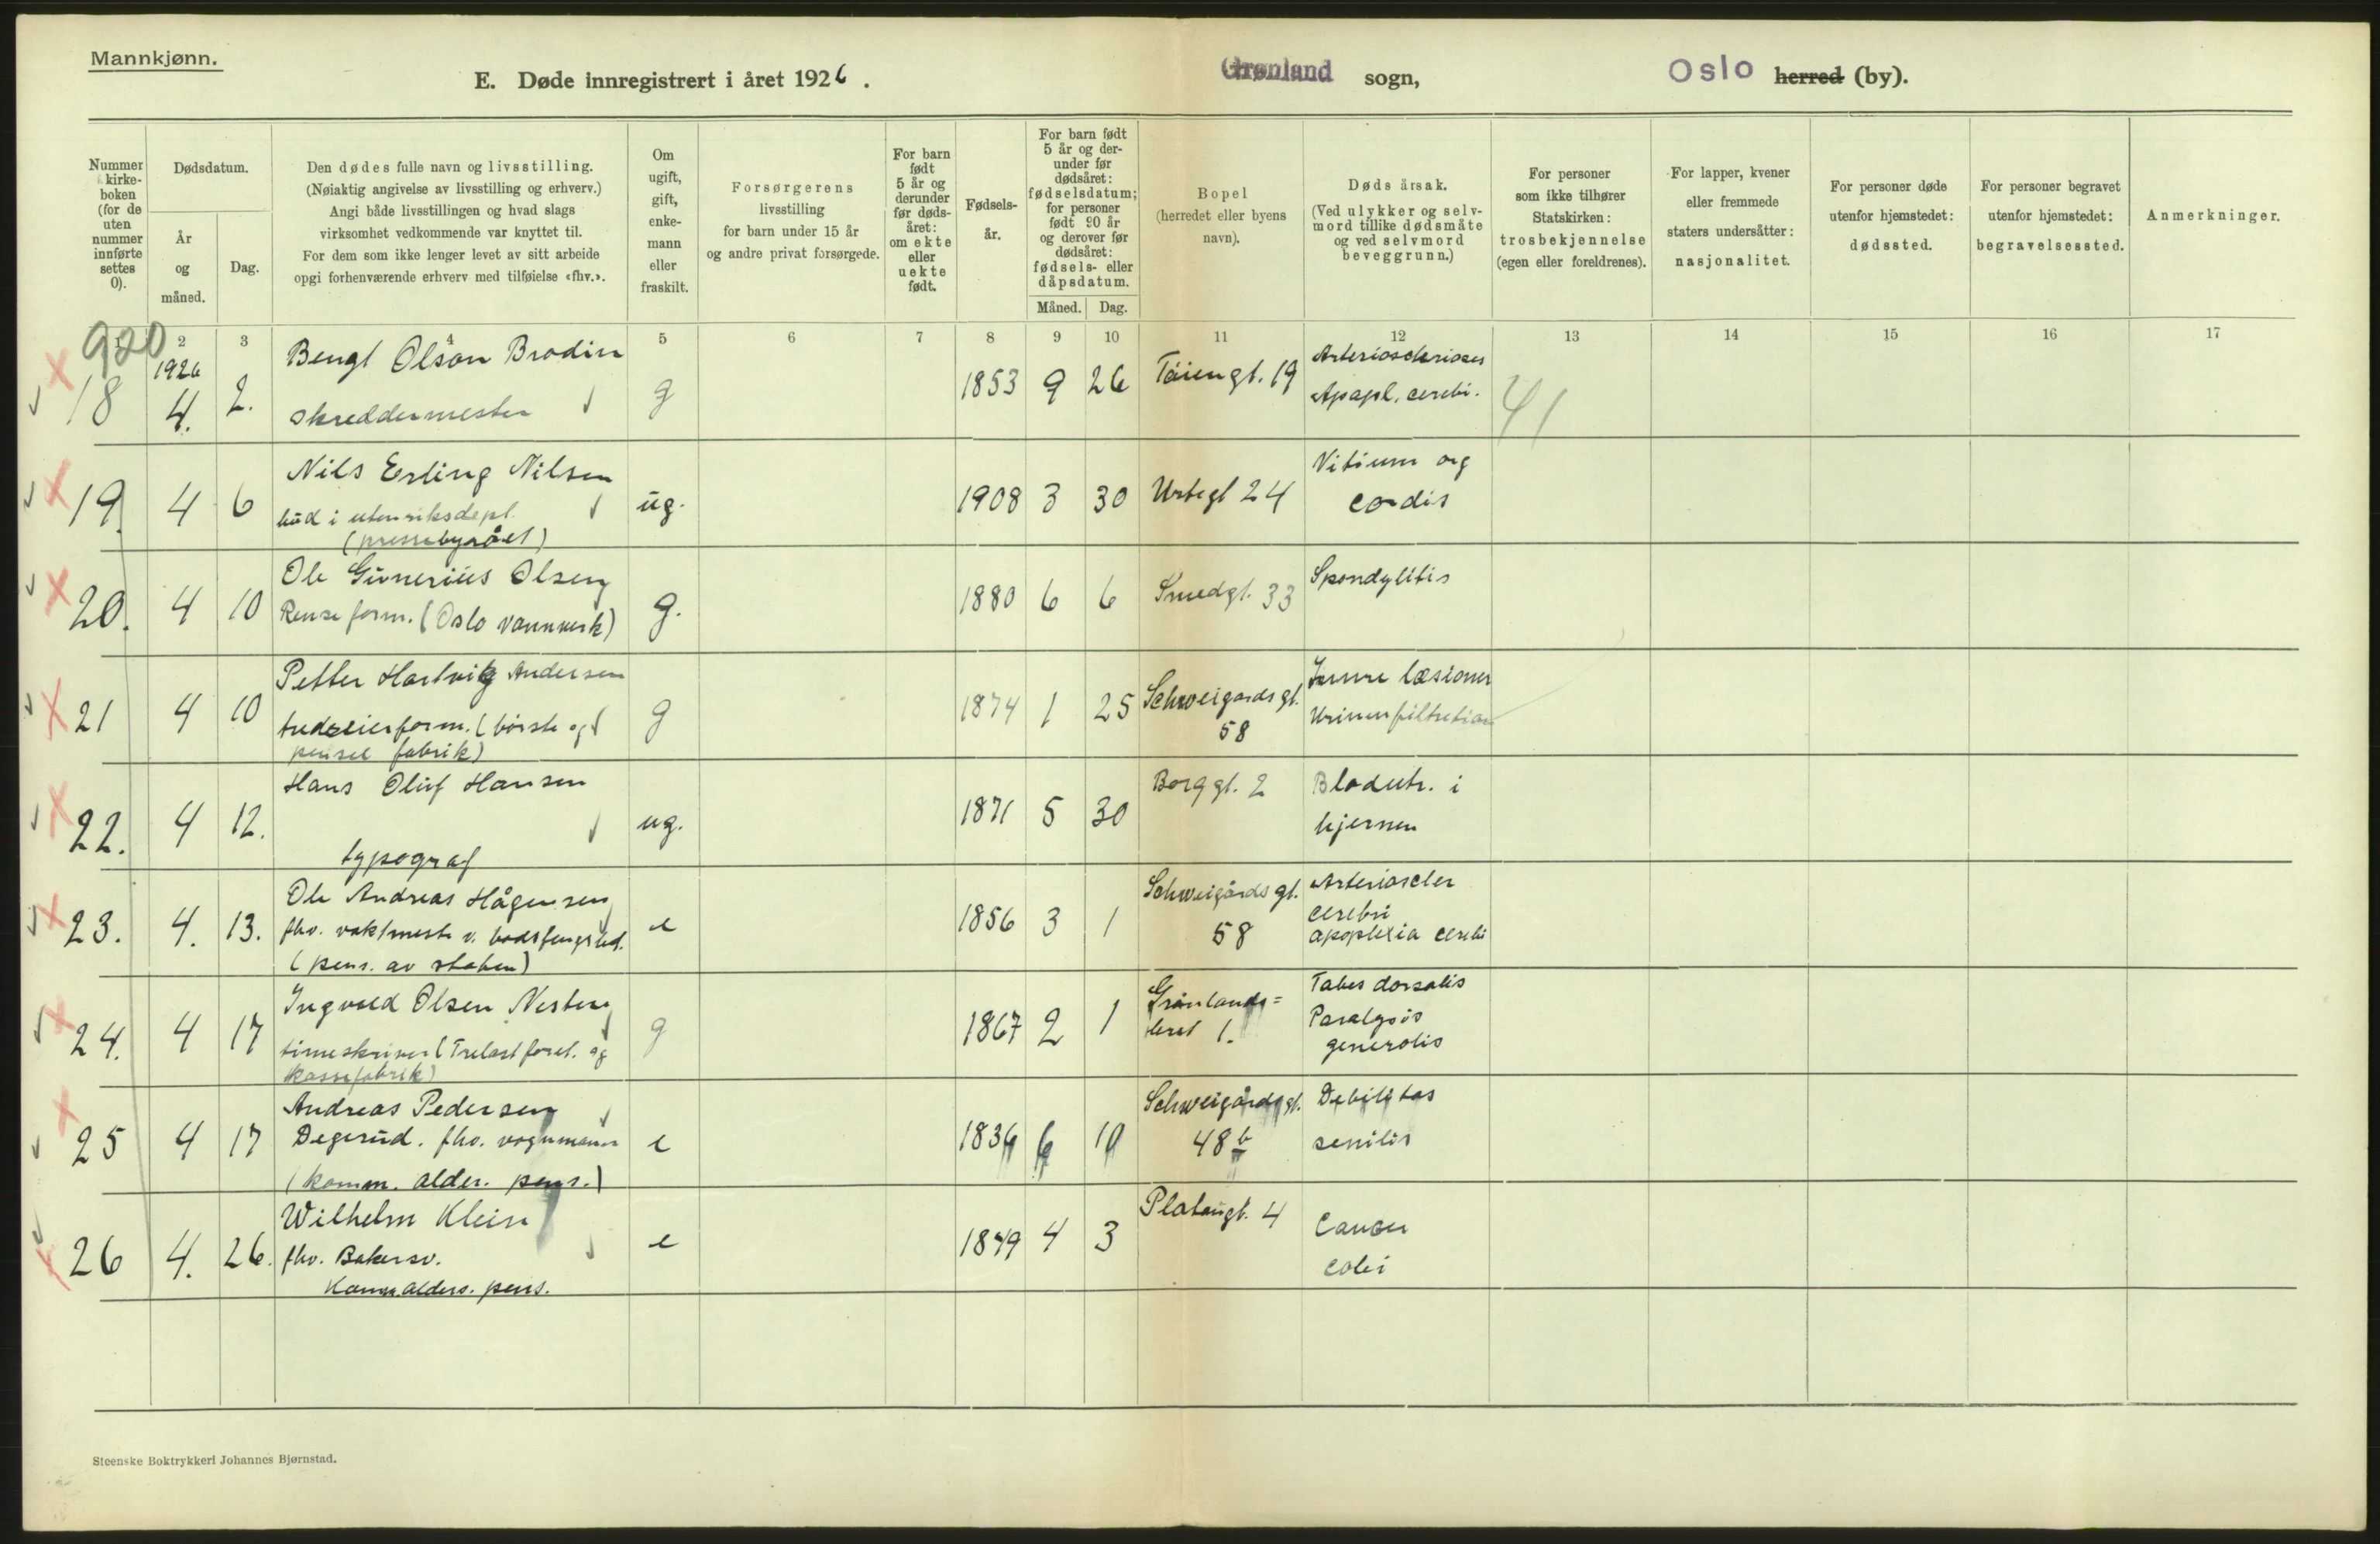 Mannkjønn.
E. Døde innregistrert i året 1926.
Grønland sogn,
Oslo herred (by).
Nummer i kirke-boken (for de uten nummer innførte settes 0).
Dødsdatum.
År og måned.
Dag.
Den dødes fulle navn og livsstilling.
(Nøiaktig angivelse av livsstilling og erhverv.)
Angi både livsstillingen og hvad slags
virksomhet vedkommende var knyttet til.
For dem som ikke lenger levet av sitt arbeide
opgi forhenværende erhverv med tilføielse «fhv.».
Om ugift, gift, enke-mann eller fraskilt.
Forsørgerens
livsstilling
for barn under 15 år
og andre privat forsørgede.
For barn født 5 år og derunder før døds-året: om ekte eller uekte født.
Fødsels-år.
For barn født 5 år og der-under før dødsåret: fødselsdatum; for personer født 90 år og derover før dødsåret: fødsels- eller dåpsdatum.
Måned. Dag.
Bopel
(herredet eller byens navn).
Dødsårsak.
(Ved ulykker og selv-mord tillike dødsmåte og ved selvmord beveggrunn.)
For personer som ikke tilhører Statskirken: trosbekjennelse (egen eller foreldrenes).
For lapper, kvener eller fremmede staters undersåtter: nasjonalitet.
For personer døde utenfor hjemstedet: dødssted.
For personer begravet utenfor hjemstedet: begravelsessted.
Anmerkninger.
2 3 4 5 6 7 8 9 10 11 12 13 14 15 16 17
920
18 1926 4. 2. Bengt Olson Brodin
skreddermester g 1853 9 26 Tøiengt. 19 Arteriosclerioses
Apopl. cerebri. 41
19. 4 6 Nils Erling Nilsen
bud i utenriksdept.
(pressebyrået) ug. 1908 3 30 Urtegt 24 Vitium org
cordis
20. 4 10 Ole Gunerius Olsen
Renseform. (Oslo vannverk) g. 1880 6 6 Smedgt. 33 Spondylitis
21 4 10 Petter Hartvig Andersen
(børste og
pensel fabrik) g 1874 1 25 Schweigårdsgt.
58 Innure læsioner
Urininfiltration
22. 4 12. Hans Oluf Hansen
typograf ug. 1871 5 30 Borggt. 2 Blodutr. i
hjernen
23. 4. 13. Ole Andreas Hågensen
fhv. vaktmest. v. bodsfengslet.
(pens. av staten) e 1856 3 1 Schweigårdsgt.
58 Arterioscler
cerebri
apoplexia cerebri
24. 4 17 Ingvald Olsen Nesten
timeskriver (Trelastforet. og
kassefabrik) g 1867 2 1 Grønlands=
leret 1. Tabes dorsalis
Paralysis
generalis
25 4 17 Andreas Pedersen
Degerud. fhv. vognmann
(komm. alder. pens.) e 1836 6 10 Schweigårdsgt.
48 b Debilitas
senilis
26 4. 26. Wilhelm Klein
fhv. Bakersv.
Komm. alders. pens. e 1849 4 3 Platougt. 4 Cancer
coli
Steenske Boktrykkeri Johannes Bjørnstad.